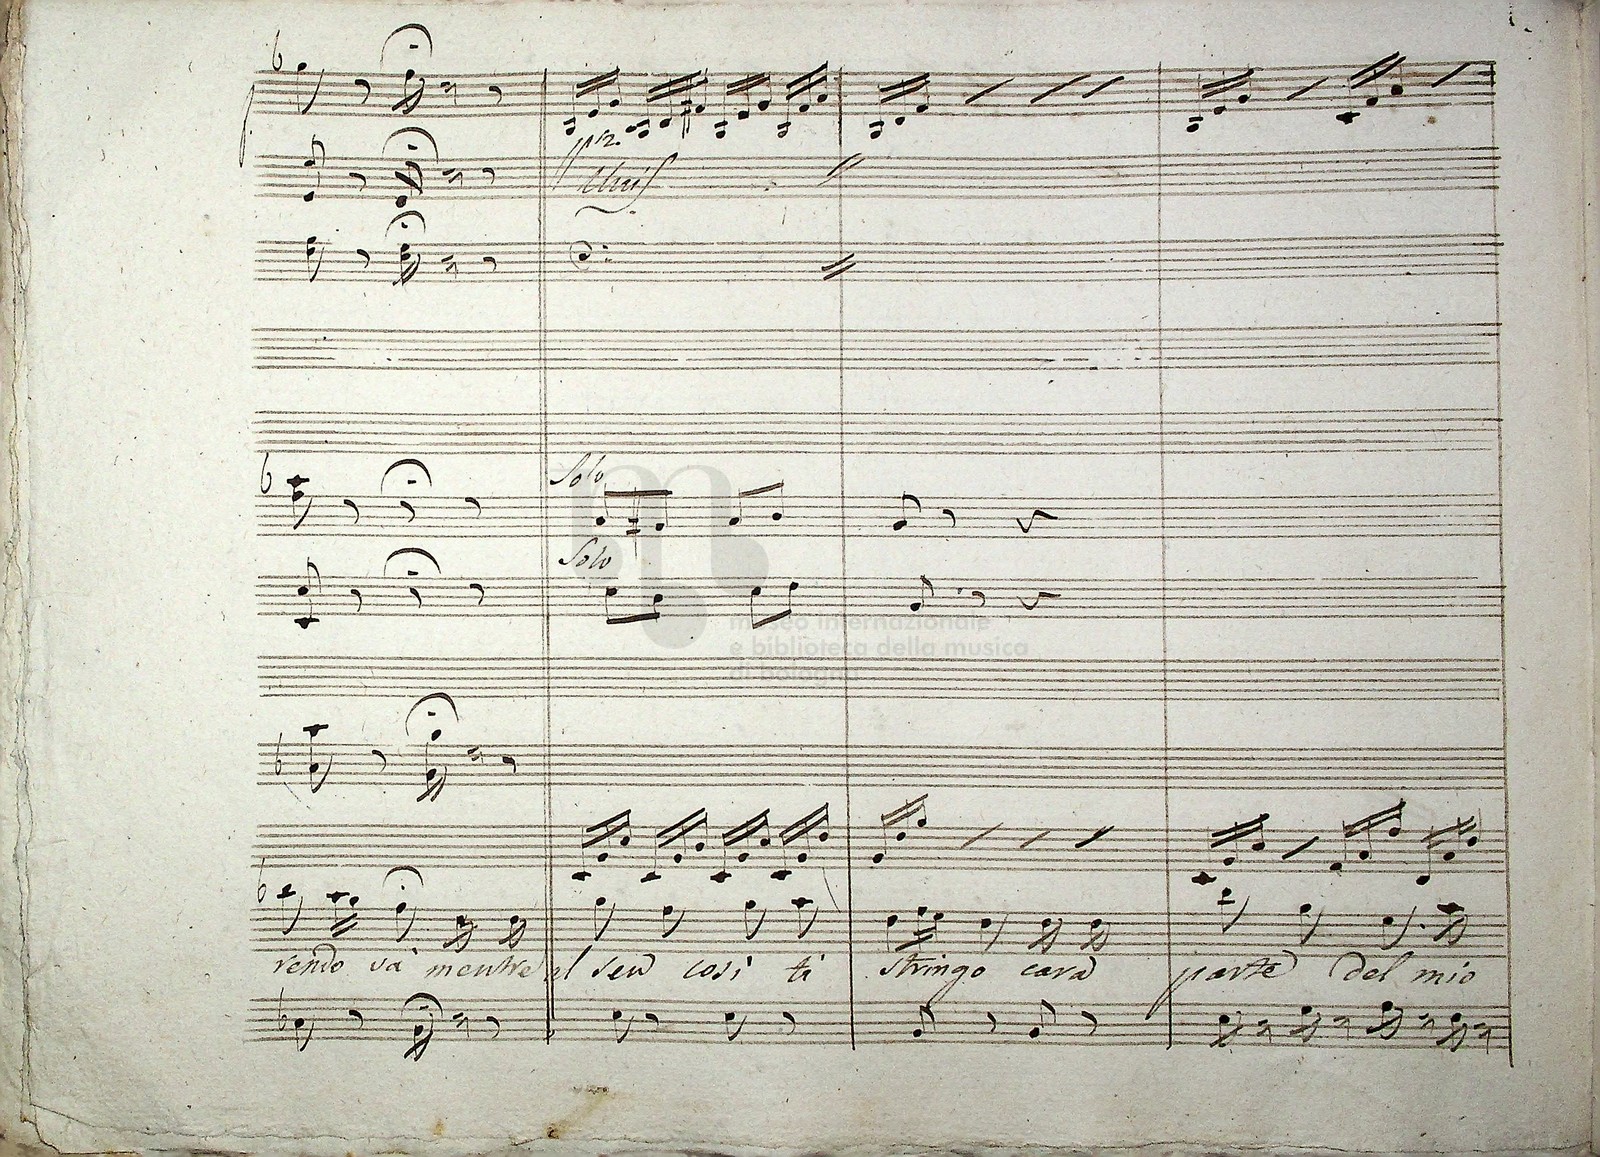 Unis
Solo
Solo
museo internazionale
e biblioteca della musica
di bologna
rendo va mentre al sen così ti stringo cara parte del mio